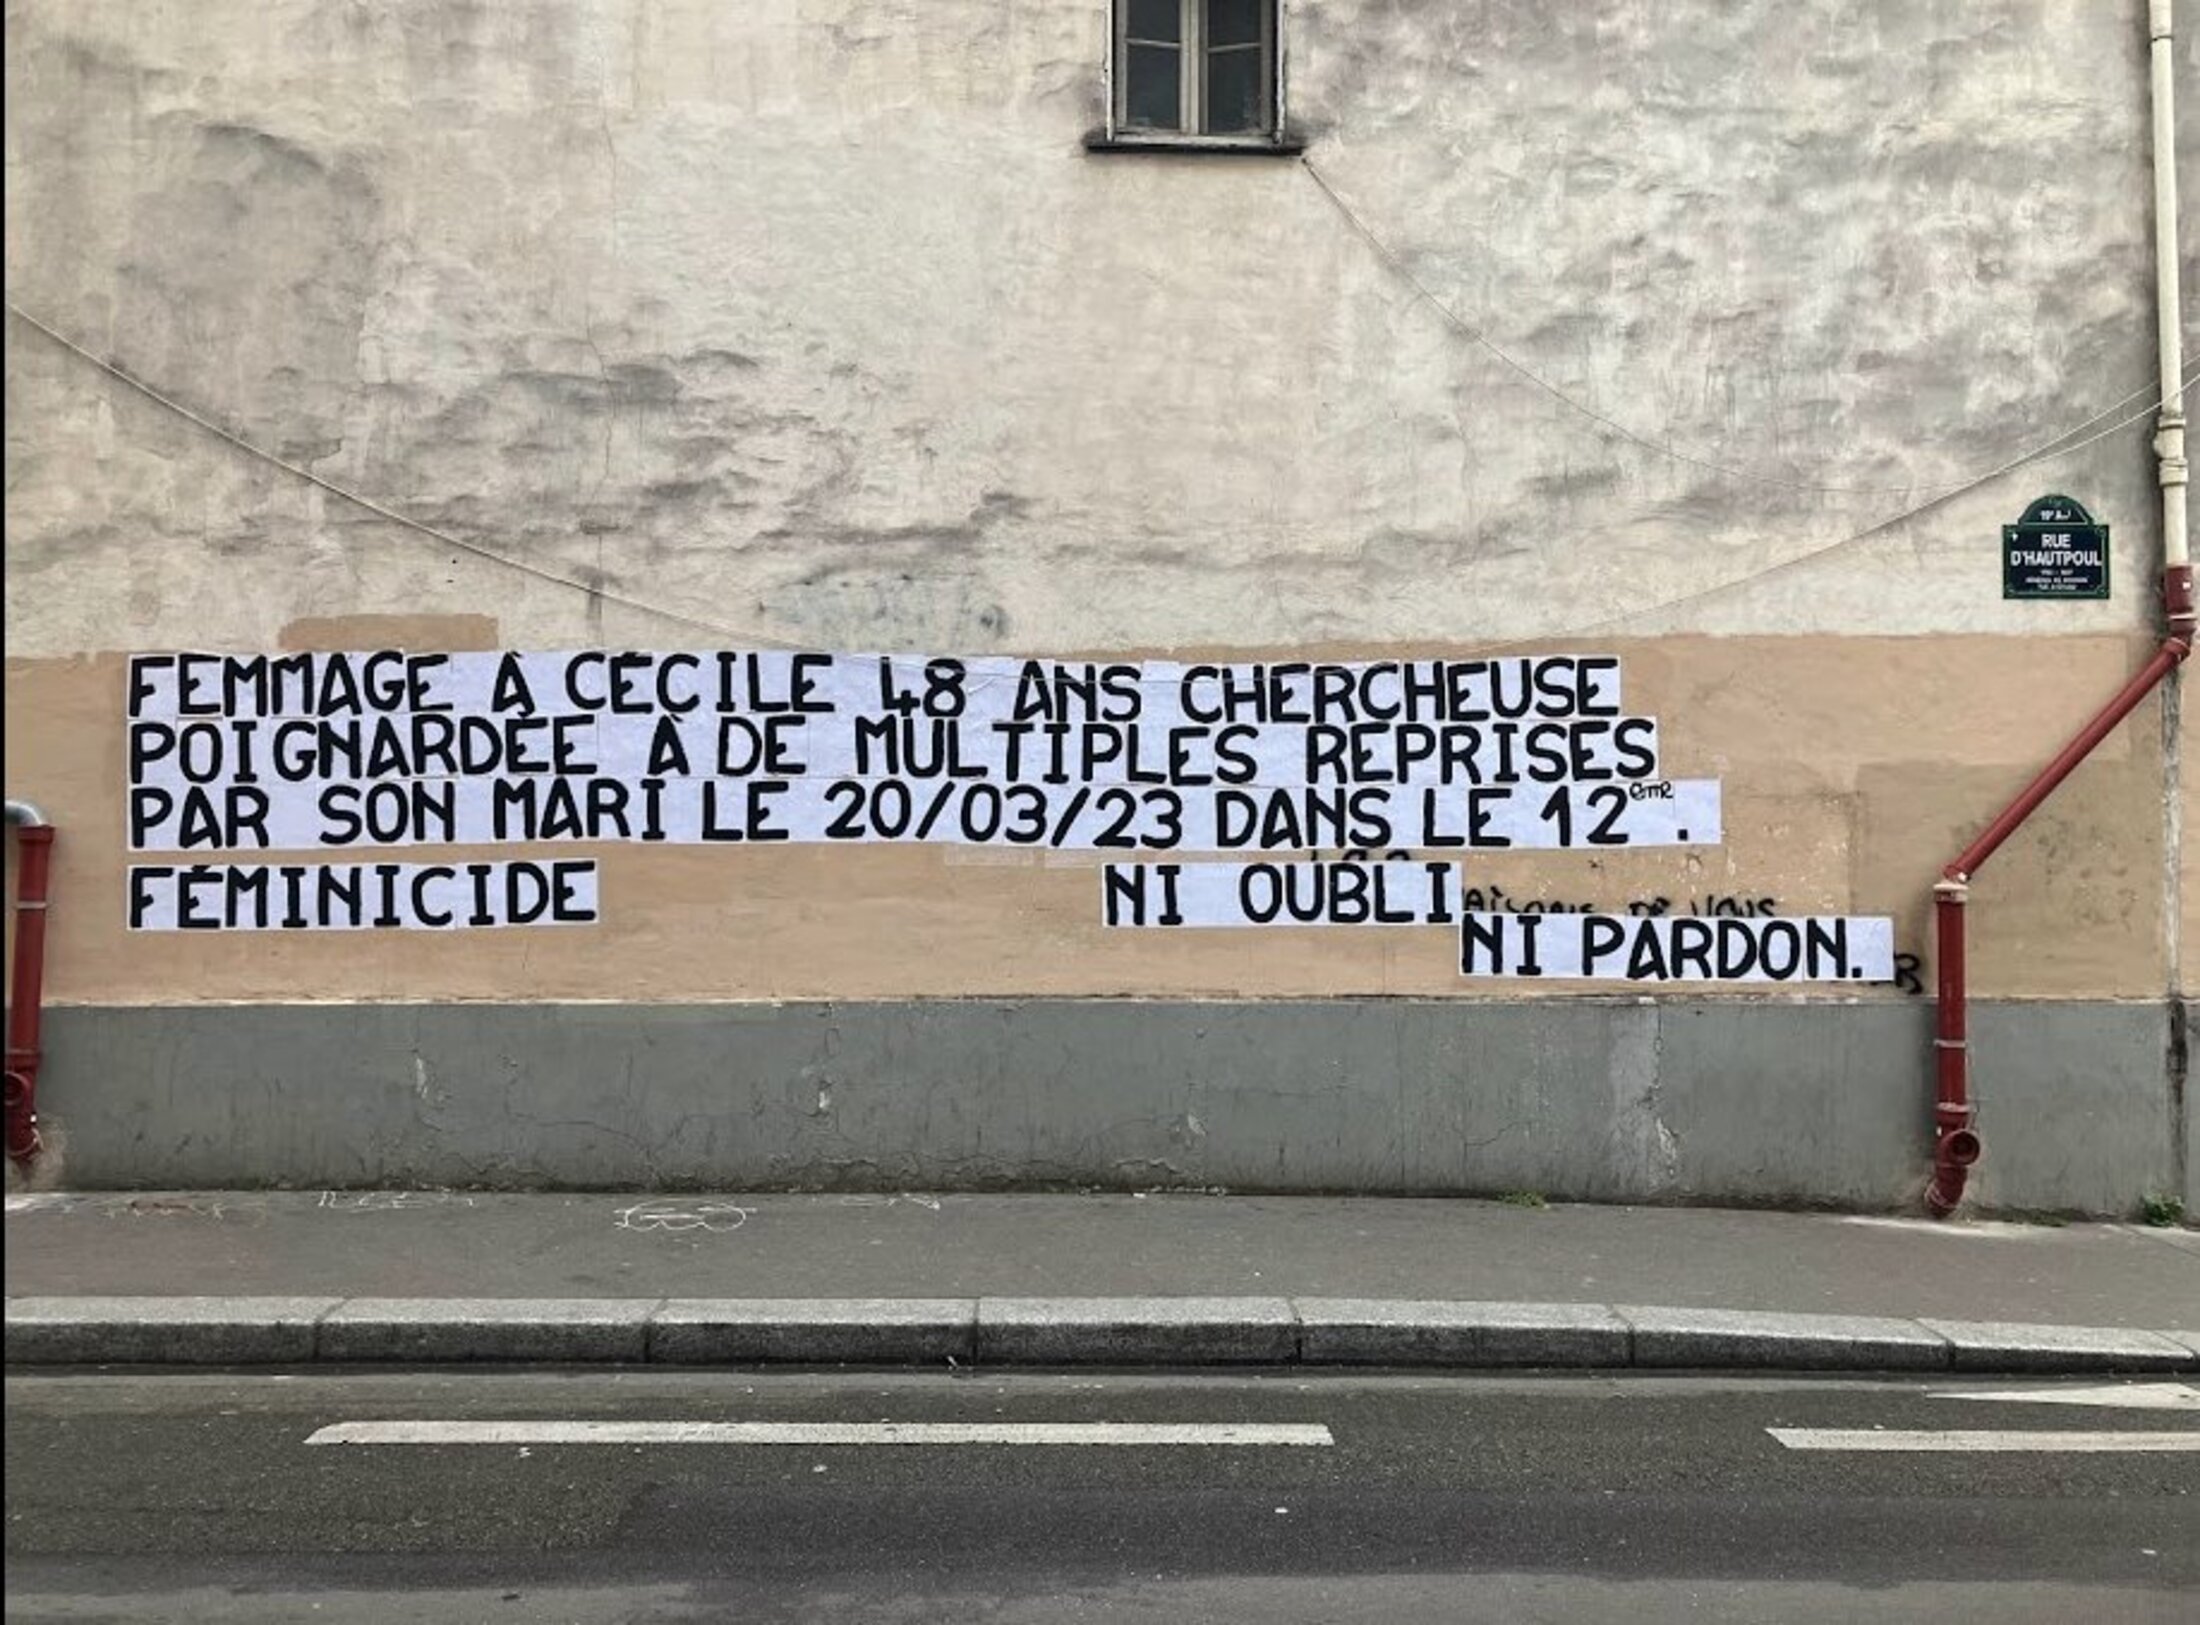 19e Arr
RUE
D'HAUTPOUL
FEMMAGE À CÉCILE 48 ANS CHERCHEUSE
POIGNARDÉE À DE MULTIPLES REPRISES
PAR SON MARI LE 20/03/23 DANS LE 12ème.
FÉMINICIDE NI OUBLI
DE VOUS
NI PARDON.